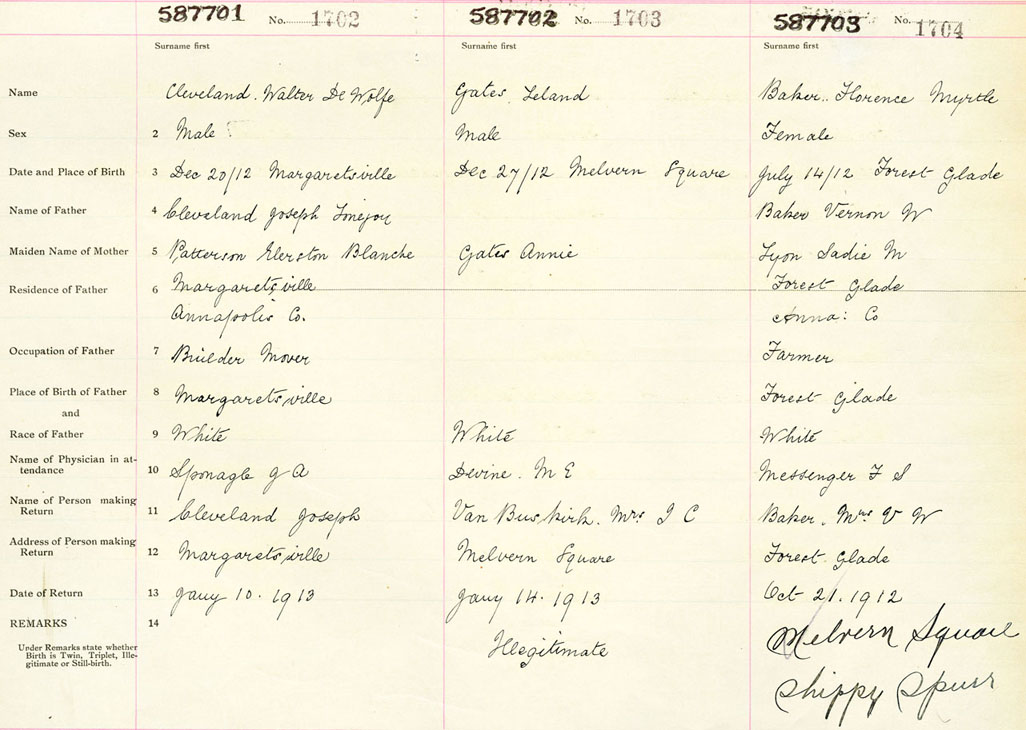 587701 No. 1702 587702 No. 1703 587703 No. 1704
Surname first Surname first Surname first
Name Cleveland. Walter De Wolfe Gates, Leland Baker. Florence Myrtle
Sex 2 Male Male Female
Date and Place of Birth 3 Dec 20/12 Margaretsville Dec 27/12 Melvern Square July 14/12 Forest Glade
Name of Father 4 Cleveland Joseph Baker Vernon W
Maiden Name of Mother 5 Patterson Blanche Gates Annie Lyon Sadie M
Residence of Father 6 Margaretsville Forest Glade
Annapolis Co. Anna: Co
Occupation of Father 7 Builder Mover Farmer
Place of Birth of Father 8 Margaretsville Forest Glade
and
Race of Father 9 White White White
Name of Physician in at-
tendance 10 Sponagle J A Devine. M E Messenger F S
Name of Person making
Return 11 Cleveland Joseph Van Buskirk. Mrs J C Baker. Mrs V W
Address of Person making
Return 12 Margaretsville Melvern Square Forest Glade
Date of Return 13 Jany 10. 1913 Jany 14. 1913 Oct 21. 1912
REMARKS 14
Under Remarks state whether
Birth is Twin, Triplet, Ille-
gitimate or Still-birth.
Illegitimate
Melvern Square
Shippy Spurr